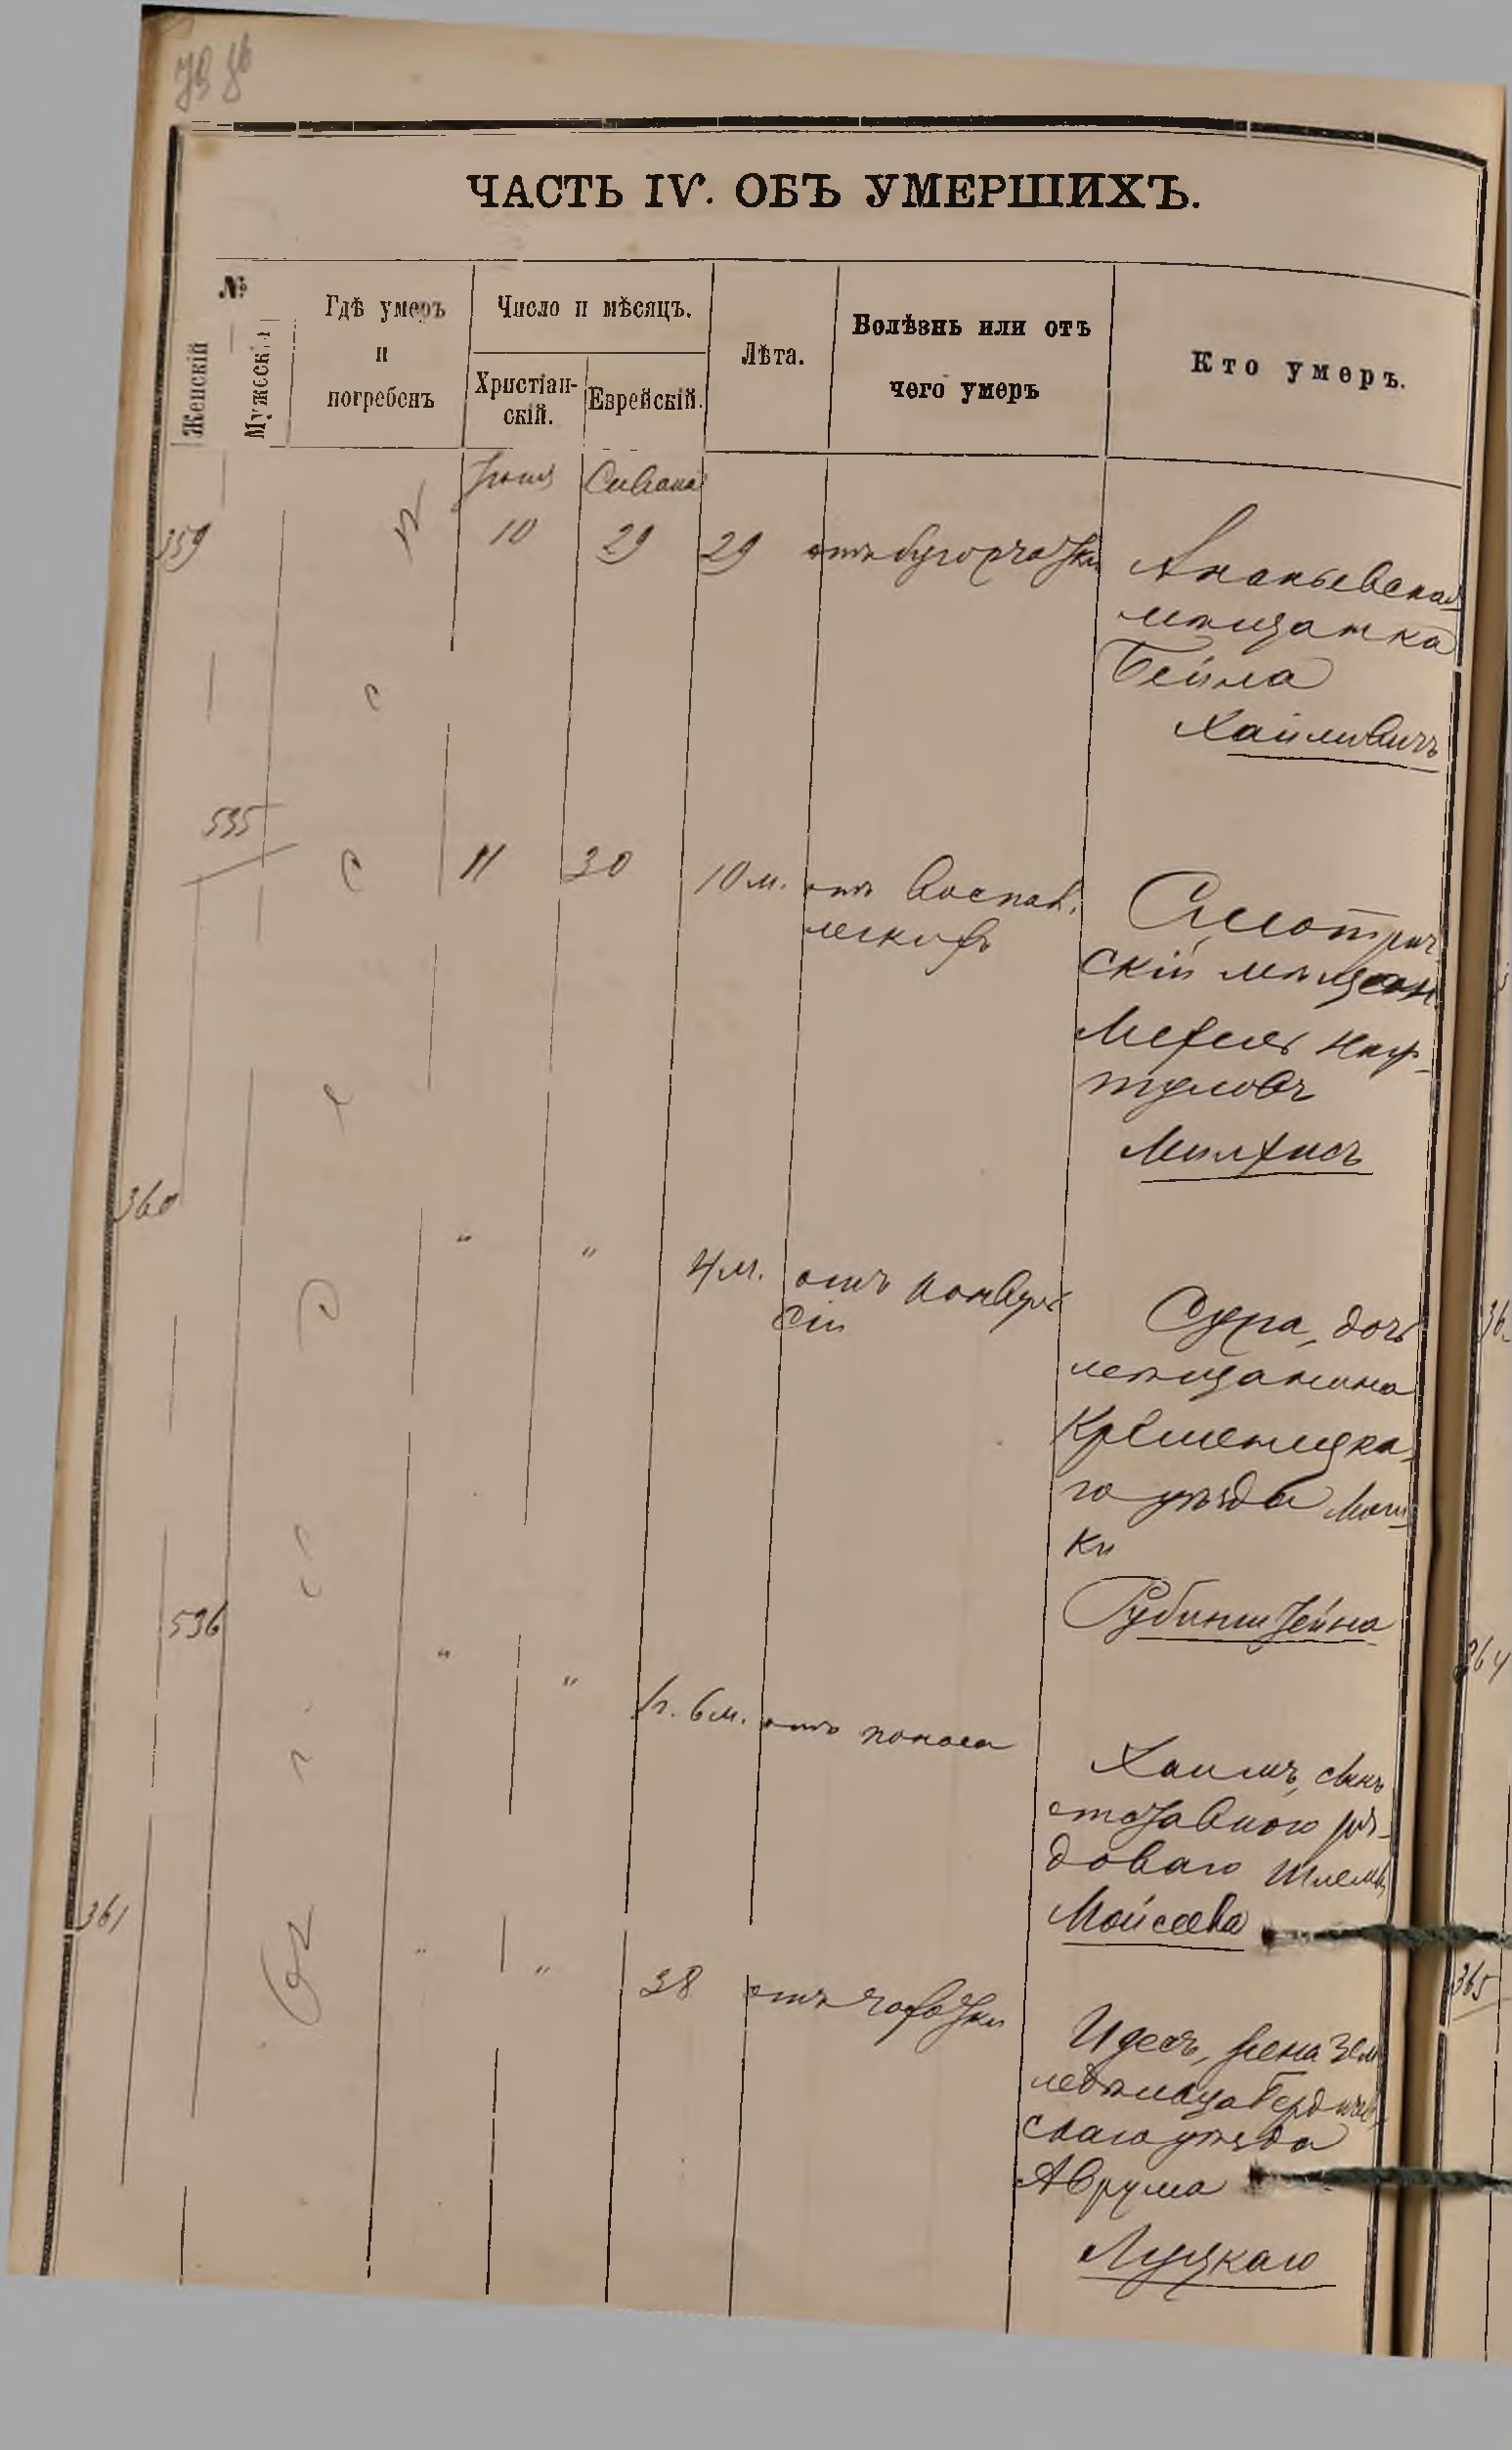 ЧАСТЬ IV. ОБЪ УМЕРШИХЪ.
№
Женскій
Мужескій
Гдѣ умеръ
и
погребенъ
Число и мѣсяцъ.
Христіан-
скій.
Еврейскій.
Лѣта.
Болѣзнь или отъ
чего умеръ
Кто умеръ.
Іюня Сивана
359 10 29 29 отъ бугорчатки
Ананьевская
мѣщанка
Бейла
Хаймовичъ
535 11 30 10 м. отъ воспал.
легкихъ
Смотрич
скій мѣщан.
Мехель Наф-
туловъ
Милхисъ
360 " " 4 м. отъ конвуль
сіи
Сура, дочь
мѣщанина
Кременецка-
го уѣзда Мош-
ки
Рубинштейна
536 " " 1 г. 6 м. отъ поноса
Хаимъ, сынъ
отставного ря-
доваго Шлемы
Мойсеева
361 " " 38 отъ чахотки
Идесъ, жена зем
ледѣльца Бердичев-
скаго уѣзда
Аврума
Луцкаго
364
365